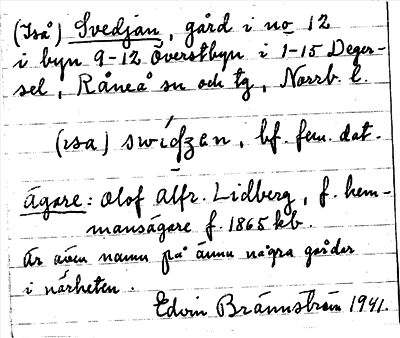 (Iså) Svedjan, gård i no 12
i byn 9-12 Överstbyn i 1-15 Deger-
sel, Råneå sn och tg, Norrb. l.
(ɪsa) , bf. fem. dat.
Ägare: Olof Alfr. Lidberg, f. hem-
mansägare f. 1865 kb.
Är även namn på ännu några gårdar
i närheten.
Edvin Brännström 1941.